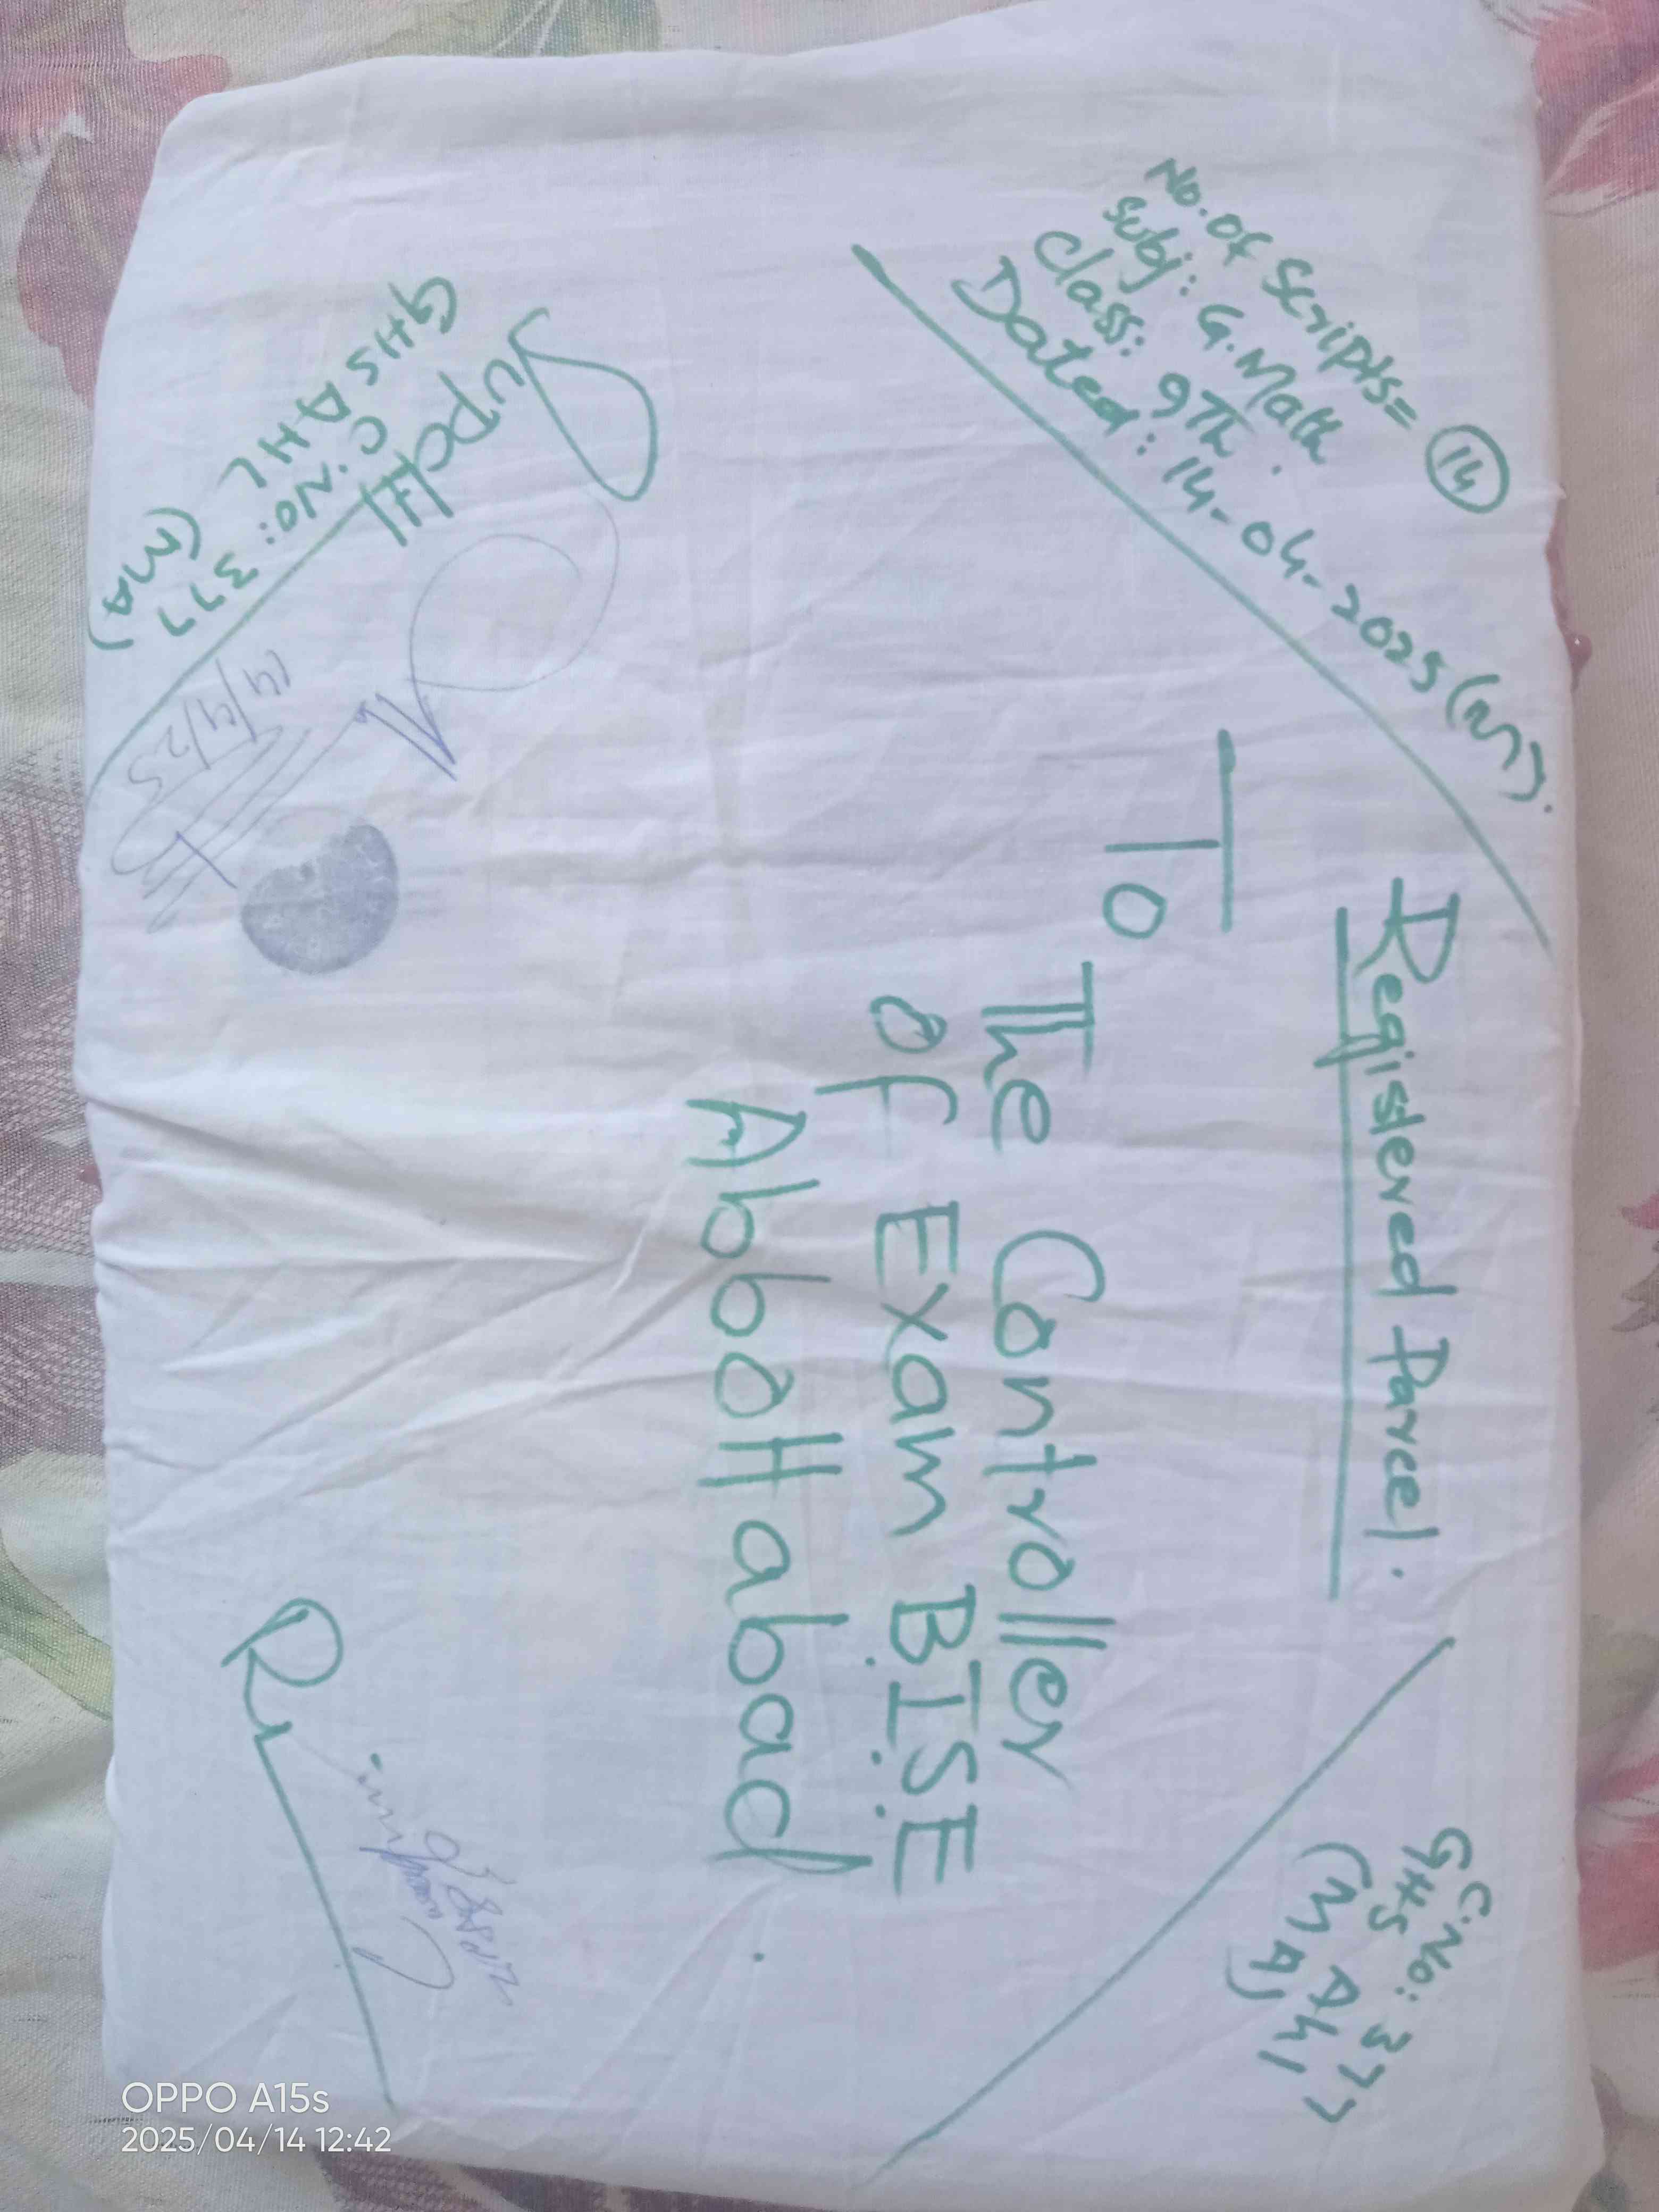 No. of Scripts = 14
Subj: G. Math
Class: 9Th.
Dated: 14-04-2025 (M).
Registered Parcel.
C.No: 377
GHS Ahl
(MA)
To
The Controller
Of Exam B.I.S.E
Abbottabad.
Supdtt
GHS AHL
C.No: 377
(MA)
14/4/25
OPPO A15s
2025/04/14 12:42